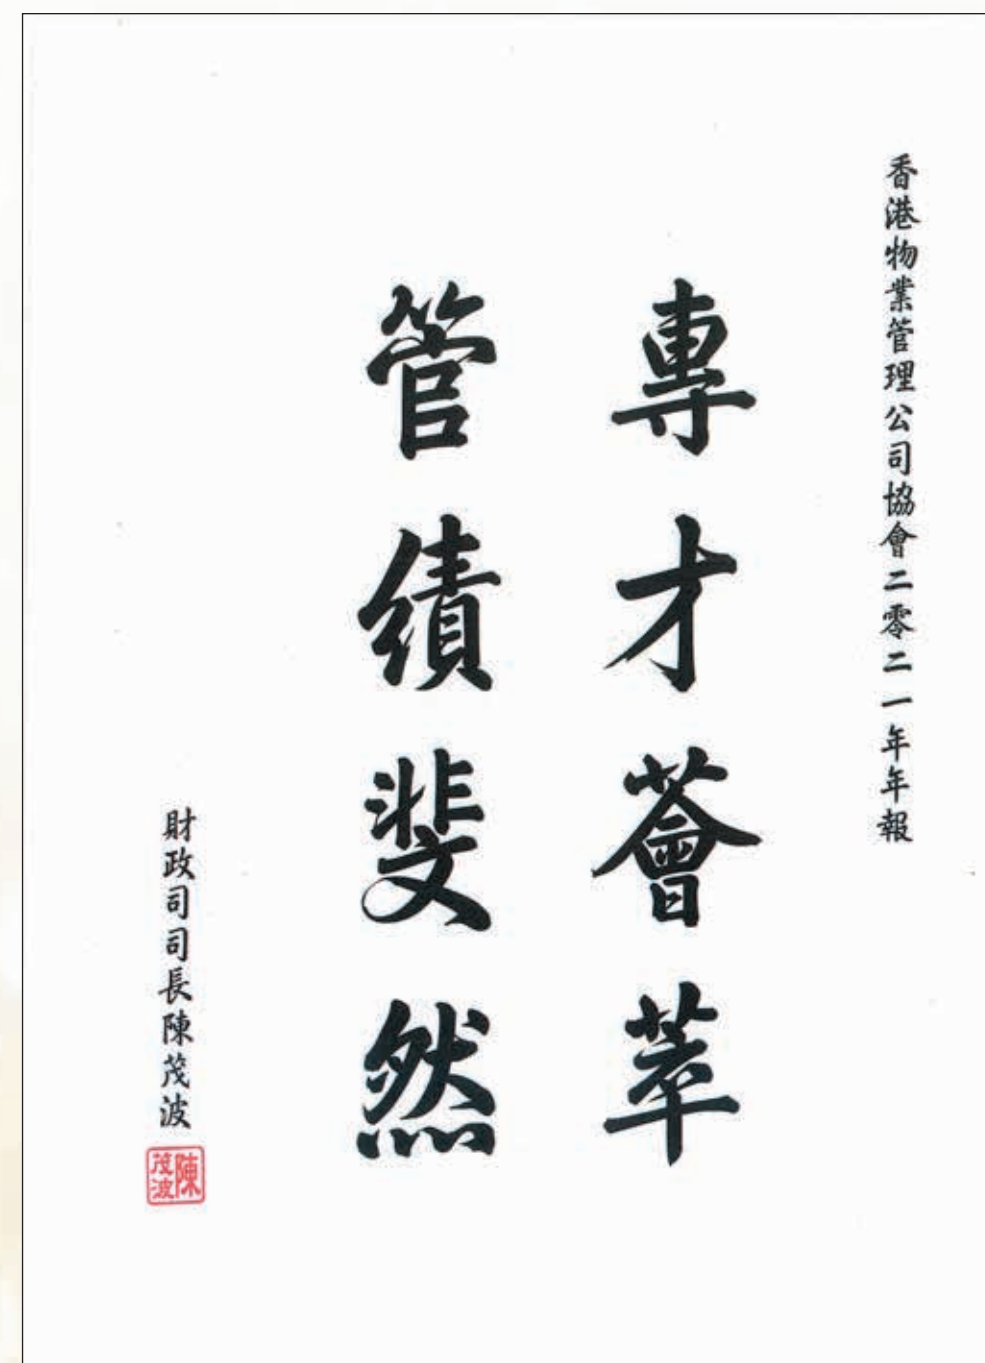 香港物業管理公司協會二零二一年年報
專才薈萃
管績斐然
財政司司長陳茂波
陳茂波